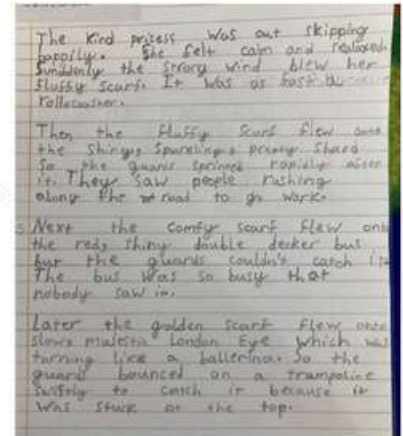 The kind pricess was out skipping
happily. She felt calm and realaxed.
Sunddenly the strong wind blew her
fluffy scarf. It was as fast a
rollacoaster.
Then the fluffy scarf flew onto
the shingy, sparkling, pretty
So the guards sprinted rapidly after
it. They saw people rushing
along the road to go work.
Next the comfy scarf flew onto
the red, shiny double decker bus
but the guards couldn't catch it.
The bus was so busy that
nobody saw it.
Later the golden scarf flew onto
slow London Eye which was
turning like a ballerina. So the
guard bounced on a trampoline
swiftly to catch it because it
was stuck at the top.